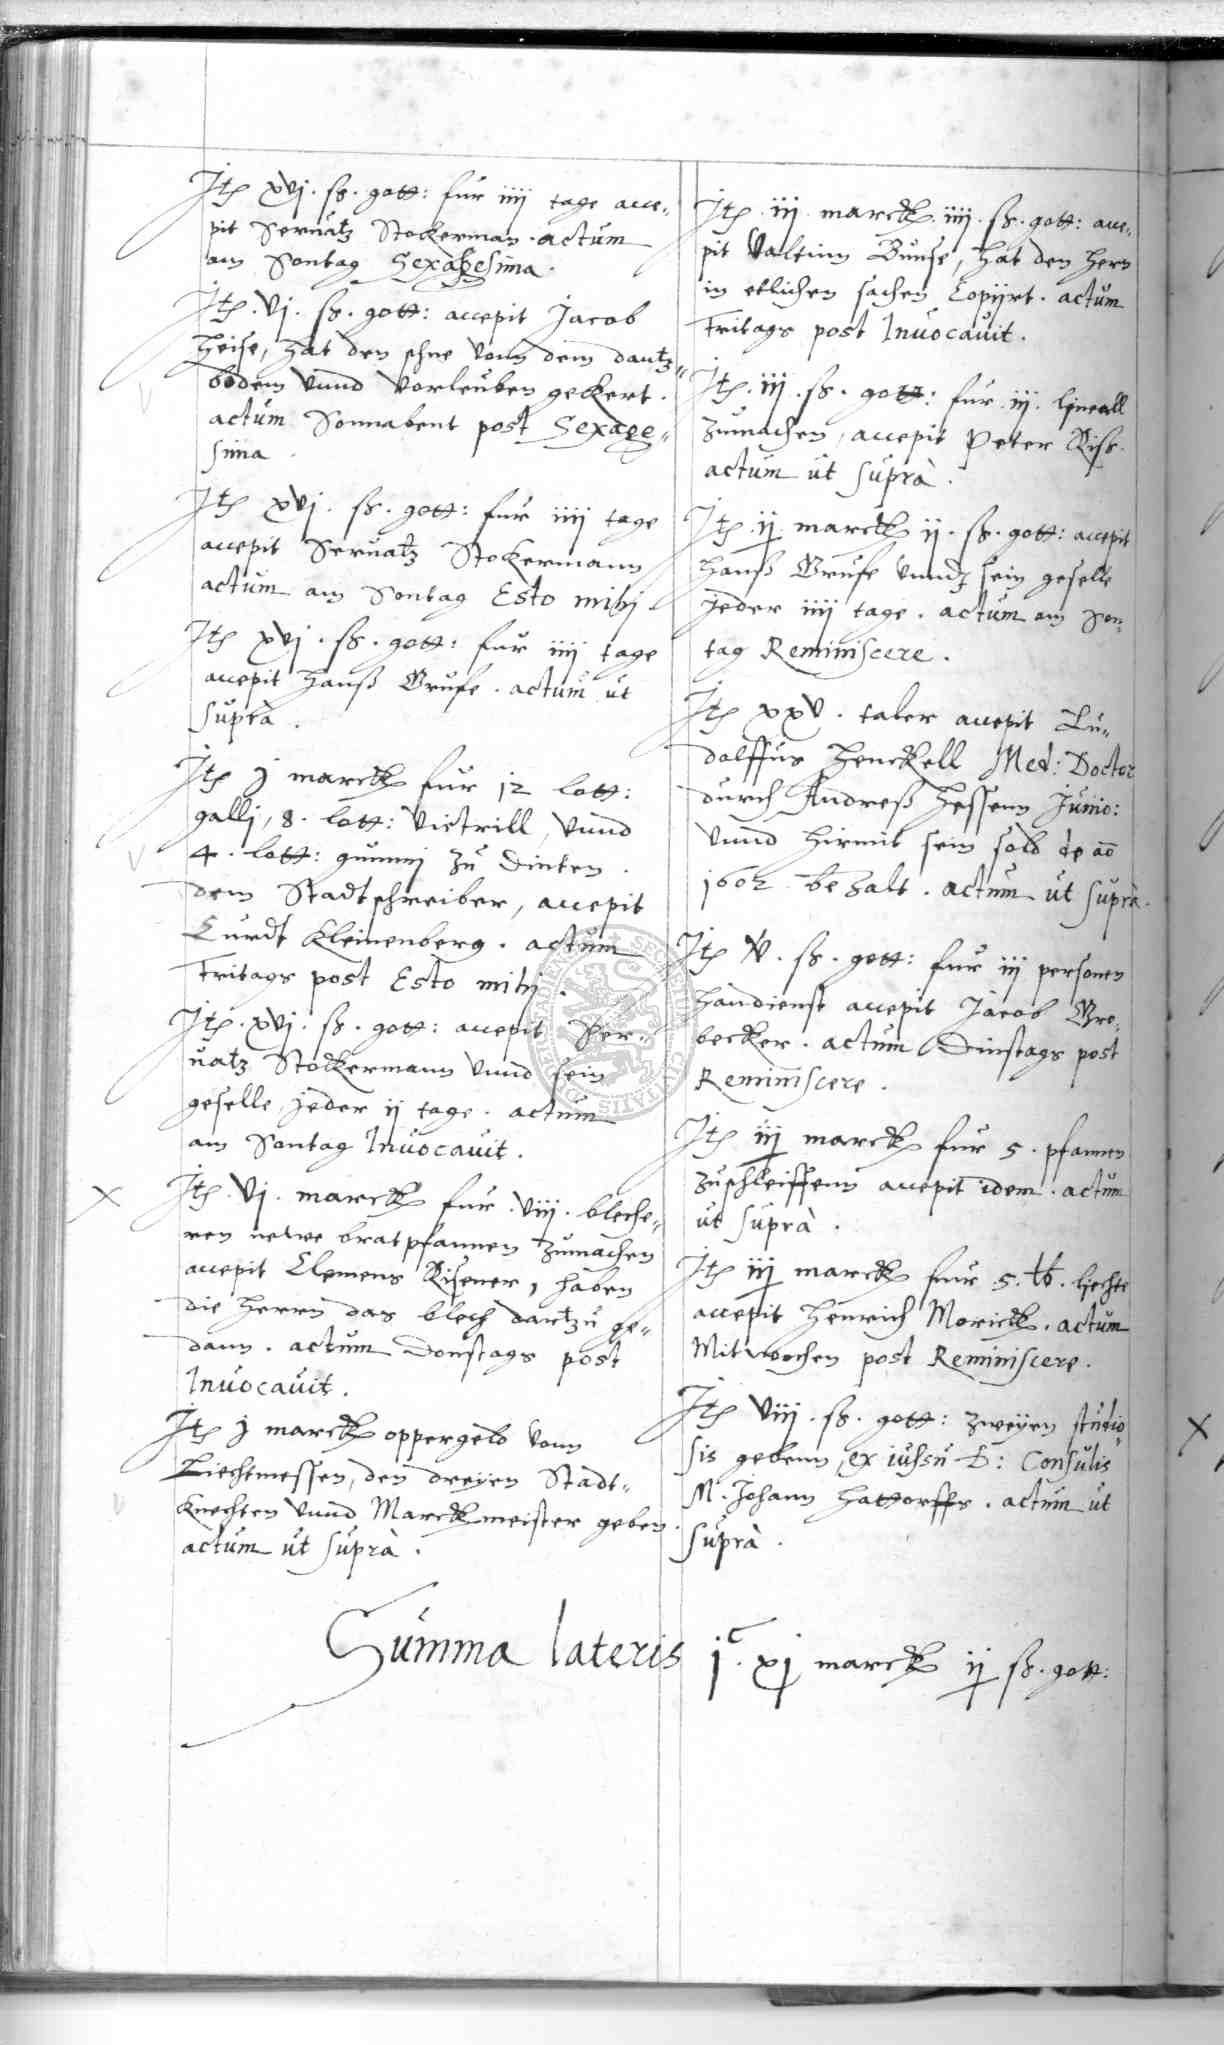 Itẽ xvj. ß. gott: fur iiij tage acce„
pit Servatz Stockerman. actum
am Sontag Sexagesima.
Itẽ. vj. ß. gott: accepit Jacob
Heise, hat den schne vonn dem dantz„
bodem vnnd vorleuben gekert.
actum Sonnabent post Sexage„
sima.
Itẽ xvj. ß. gott: fur iiij tage
accepit Servatz Stockermann
actum am Sontag Esto mihj
Itẽ xvj. ß. gott: fur iiij tage
accepit Hanß Grufe. actum ut
suprà.
Itẽ j marck fur 12 lott:
gallj, 8. lott: victrill, vnnd
4. lott: gummj zu Dinten.
dem Stadtschreiber, accepit
Curdt Kleinenberg. actum
Fritags post Esto mihj.
Itẽ. xvj. ß. gott: accepit Ser„
vatz Stockermann vnnd sein
geselle jeder ij tage. actum
am Sontag Invocavit.
Itẽ. vj. marck fur. viij. bleche„
ren newe bratpfannen zumachen
accepit Clemens Risener, haben
die Herrn das blech dartzu ge„
dann. actum Donstags post
Invocavit.
Itẽ j marck oppergeld vonn
Liechtmessen, den dreyen Stadt„
knechten vnnd Marckmeister geben.
actum ut suprà.
Itẽ. iij. marck. iiij. ß. gott: acce„
pit Valtinn Bunse, hat den hern
in etlichen sachen Copijrt. actum
Fritags post Invocavit.
Itẽ. iij. ß. gott: fur. iij. lineall
zumachen, accepit Peter Riss.
actum ut suprà.
Itẽ. ij. marck ij. ß. gott: accepit
Hanß Grufe vnndt sein geselle
jeder iiij tage. actum am Son„
tag Reminiscere.
Itẽ xxv. taler accepit Lu„
dolffus Henckell Med: Doctor
durch Andreß Hessenn Junio:
vnnd hirmit sein sold de aõ
1602 bezalt. actum ut suprà.
Itẽ v. ß. gott: fur iij personen
handienst accepit Jacob Gre„
becker. actum Dinstags post
Reminiscere.
Itẽ iij marck fur 5. pfannen
zuschleissenn accepit idem. actum
ut suprà.
Itẽ iij marck fur. 5. ℔. liechte
accepit Henrich Morick. actum
Mitwochen post Reminiscere.
Itẽ viij. ß. gott: zweyen studio„
sis gebenn, ex iussu D: Consulis
M. Johann Hattorffs. actum ut
suprà.
Summa lateris jᶜ. xj marck ij ß. gott: